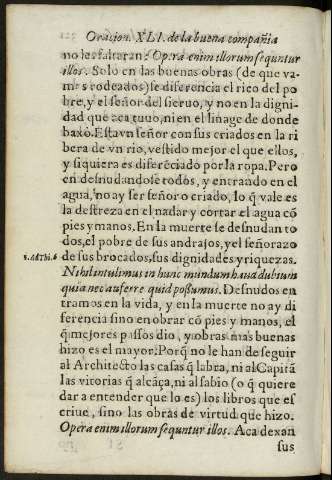 Oracion. XLI. de la buena compañia
no les faltaran: Opera enim illorum sequntur
illos. Solo en las buenas obras (de que va-
mos rodeados) se diferencia el rico del po
bre, y el señor del sieruo, y no en la digni-
dad que aca tuuo, ni en el linage de donde
baxò. Estava señor con sus criados en la ri
bera de vn rio, vestido mejor el que ellos,
y siquiera es diferẽciado por la ropa. Pero
en desnudandose todos, y entrando en el
agua, no ay ser señor o criado, lo q̃ vale es
la destreza en el nadar y cortar el agua cõ
pies y manos. En la muerte se desnudan to
dos, el pobre de sus andrajos, y el señorazo
de sus brocados, sus dignidades y riquezas.
Nihil intulimus in hunc mundum haud dubium
quia nec auferre quid possumus. Desnudos en
tramos en la vida, y en la muerte no ay di
ferencia sino en obrar cõ pies y manos, el
q̃ mejores passos dio, y obras mas buenas
hizo es el mayor. Porq̃ no le han de seguir
al Architecto las casas q̃ labra, ni al Capitã
las vitorias q̃ alcãça, ni al sabio (o q̃ quiere
dar a entender que lo es) los libros que es
criue, sino las obras de virtud que hizo.
Opera enim illorum sequntur illos. Aca dexan
sus